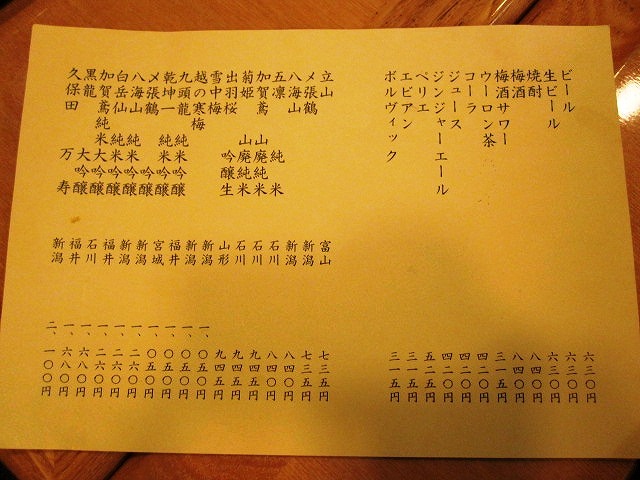 ビール 六三〇円
生ビール 六三〇円
焼酎 六三〇円
梅酒 八四〇円
梅酒サワー 八四〇円
ウーロン茶 三一五円
コーラ 四二〇円
ジュース 四二〇円
ジンジャーエール 四二〇円
ペリエ 五二五円
エビアン 三一五円
ボルヴィック 三一五円
立山 富山 七三五円
〆張鶴 新潟 七三五円
八海山 新潟 八四〇円
五凛 純米 石川 八四〇円
加賀鳶 山廃純米 石川 九四五円
菊姫 山廃純米 石川 九四五円
出羽桜 吟醸生 山形 九四五円
雪中梅 新潟 一、〇五〇円
越の寒梅 新潟 一、〇五〇円
九頭龍 純米吟醸 福井 一、〇五〇円
乾坤一 純米吟醸 宮城 一、〇五〇円
〆張鶴 吟醸 新潟 一、二六〇円
八海山 純米吟醸 新潟 一、二六〇円
白岳仙 純米吟醸 福井 一、二六〇円
加賀鳶 純米大吟醸 石川 一、六八〇円
黒龍 大吟醸 福井 一、六八〇円
久保田 万寿 新潟 二、一〇〇円